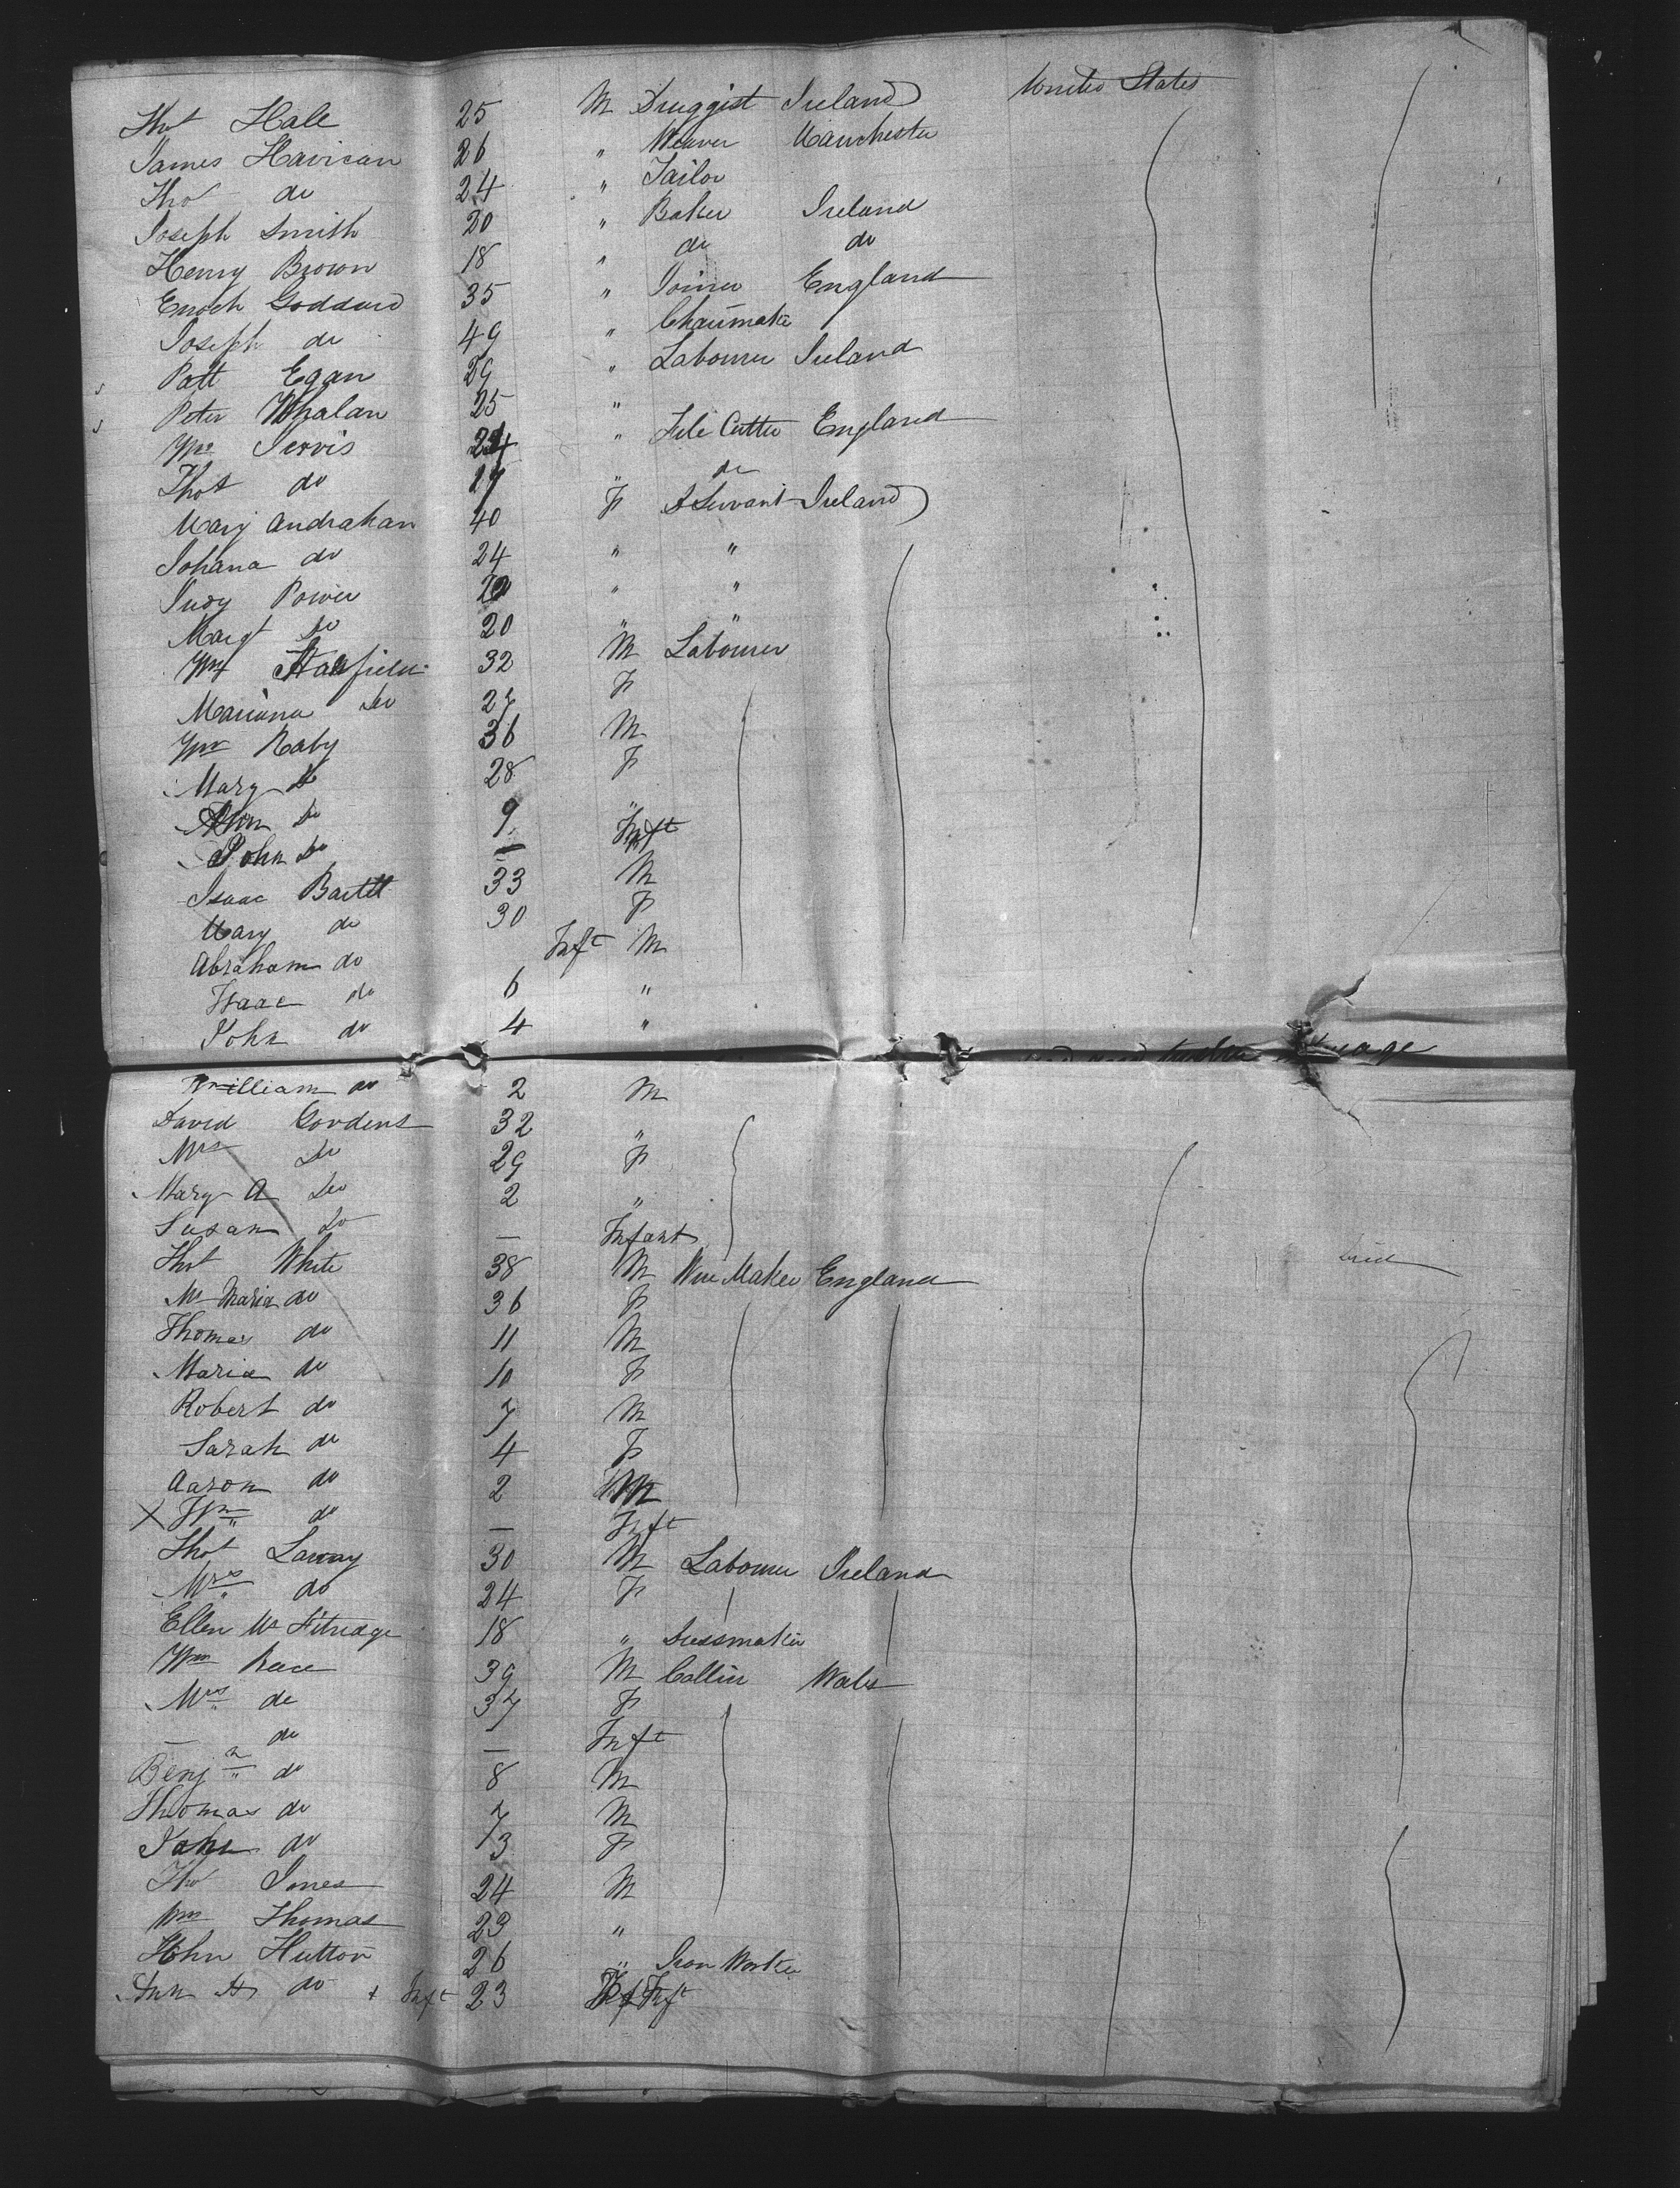 Thos Hale 25 M Druggist Ireland United States
James Havican 26 " Weaver Manchester
Tho do 24 " Tailor
Joseph Smith 20 " Baker Ireland
Henry Brown 18 " do do
Enoch Goddard 35 " Joiner England
Joseph do 49 " Chairmaker
Patt Egan 29 " Labourer Ireland
Peter Whalan 25 "
Wm Jervis 24 " File Cutter England
Thos do 17 " do
Mary Andrahan 40 F Servant Ireland
Johana do 24 " "
Judy Power 20 " "
Margt Do 20 " "
Wm 32 M Labourer
Mariana Do 27 F
Wm Raby 36 M
Mary Do 28 F
Ann Do 9 "
John Do — Inft
Isaac Bartell 33 M
Mary do 30 F
Abraham do Inft M
Isaac do 6 "
John do 4 "
William do 2 M
David Gordens 32 "
Mrs Do 29 F
Mary A Do 2 "
Susan Do — Infant
Thos White 38 M Wire Maker England Died
Mrs Maria do 36 F
Thomas do 11 M
Maria do 10 F
Robert do 7 M
Sarah do 4 F
Aaron do 2 M
X Wm do — Inft
Thos Lavray 30 M Labourer Ireland
Mrs do 24 F
Ellen Mc Fitridge 18 " Dressmaker
Wm Reece 39 M Collier Wales
Mrs do 37 F
— do — Inft
Benjn do 8 M
Thomas do 7 M
do 3 F
Tho Jones 24 M
Wm Thomas 23 "
John Hutton 26 " Iron Worker
Ann H do + Inft 23 F Inft